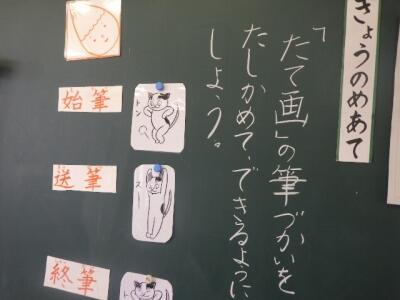 きょうのめあて
「たて画」の筆づかいを
たしかめて、できるように
しよう。
始筆
トン
送筆
スー
終筆